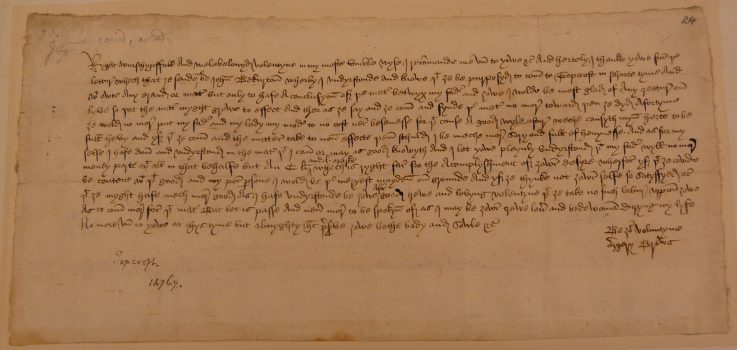 Ryght wurschypffull and welebelouyd Volentyne in my moste vmble wyse I recommande me vn to yowe &c And hertely I thanke yowe for þe
lettur whech that ye sende me be John Bekurton wherby I vndyrstonde and knowe þt ye be purposyd to com to Topcroft in schorte tyme And
wt owte any erand or mater but only to hafe a conclusyon of þe mater betwyx my fader and yowe I wolde be most glad of any creature on
lyve so þt the mater myght growe to effect And ther as ye say and ye com and fynde þe mater no more toward þen ye dyd afortyme
ye wold no more put my fader and my lady my moder to no cost ner besenesse for þt cause A good wyle aftur weche causyth myn herte to be
full hevy and yf þt ye com and the mater take to non effecte þen schuld I be meche more sory and full of heuynesse And as for my
selfe I hafe don and vndyrstond in the mater þt I can or may as good knowyth And I let yowe pleynly vndyrstond þt my fader wyll no more
money parte wt all in that behalfe but an C li and l marke whech is ryght far fro the Acomplyshment of yowr desyre wherfor yf þt ye cowde
be content wt þt good and my por persone I wold be þe meryest mayden on grounde And yf ye thynke not yowr selfe so satysfyed or
þt ye myght hafe mech more good as I hafe vndyrstonde be yowe afor good trewe and lovyng volentyne þt ye take no such labur vppon yowe
As to com more for þt mater But let is passe And neuer more to be spokyn of as I may be yowr trewe lover and bedewoman duryng my lyfe
No more vn to yowe at thys tyme but Almyghty Jhc preserve yowe bothe body and sowle &c
Be yowr Voluntyne
Mergery Brews
Topcroft.
1476/7.
24